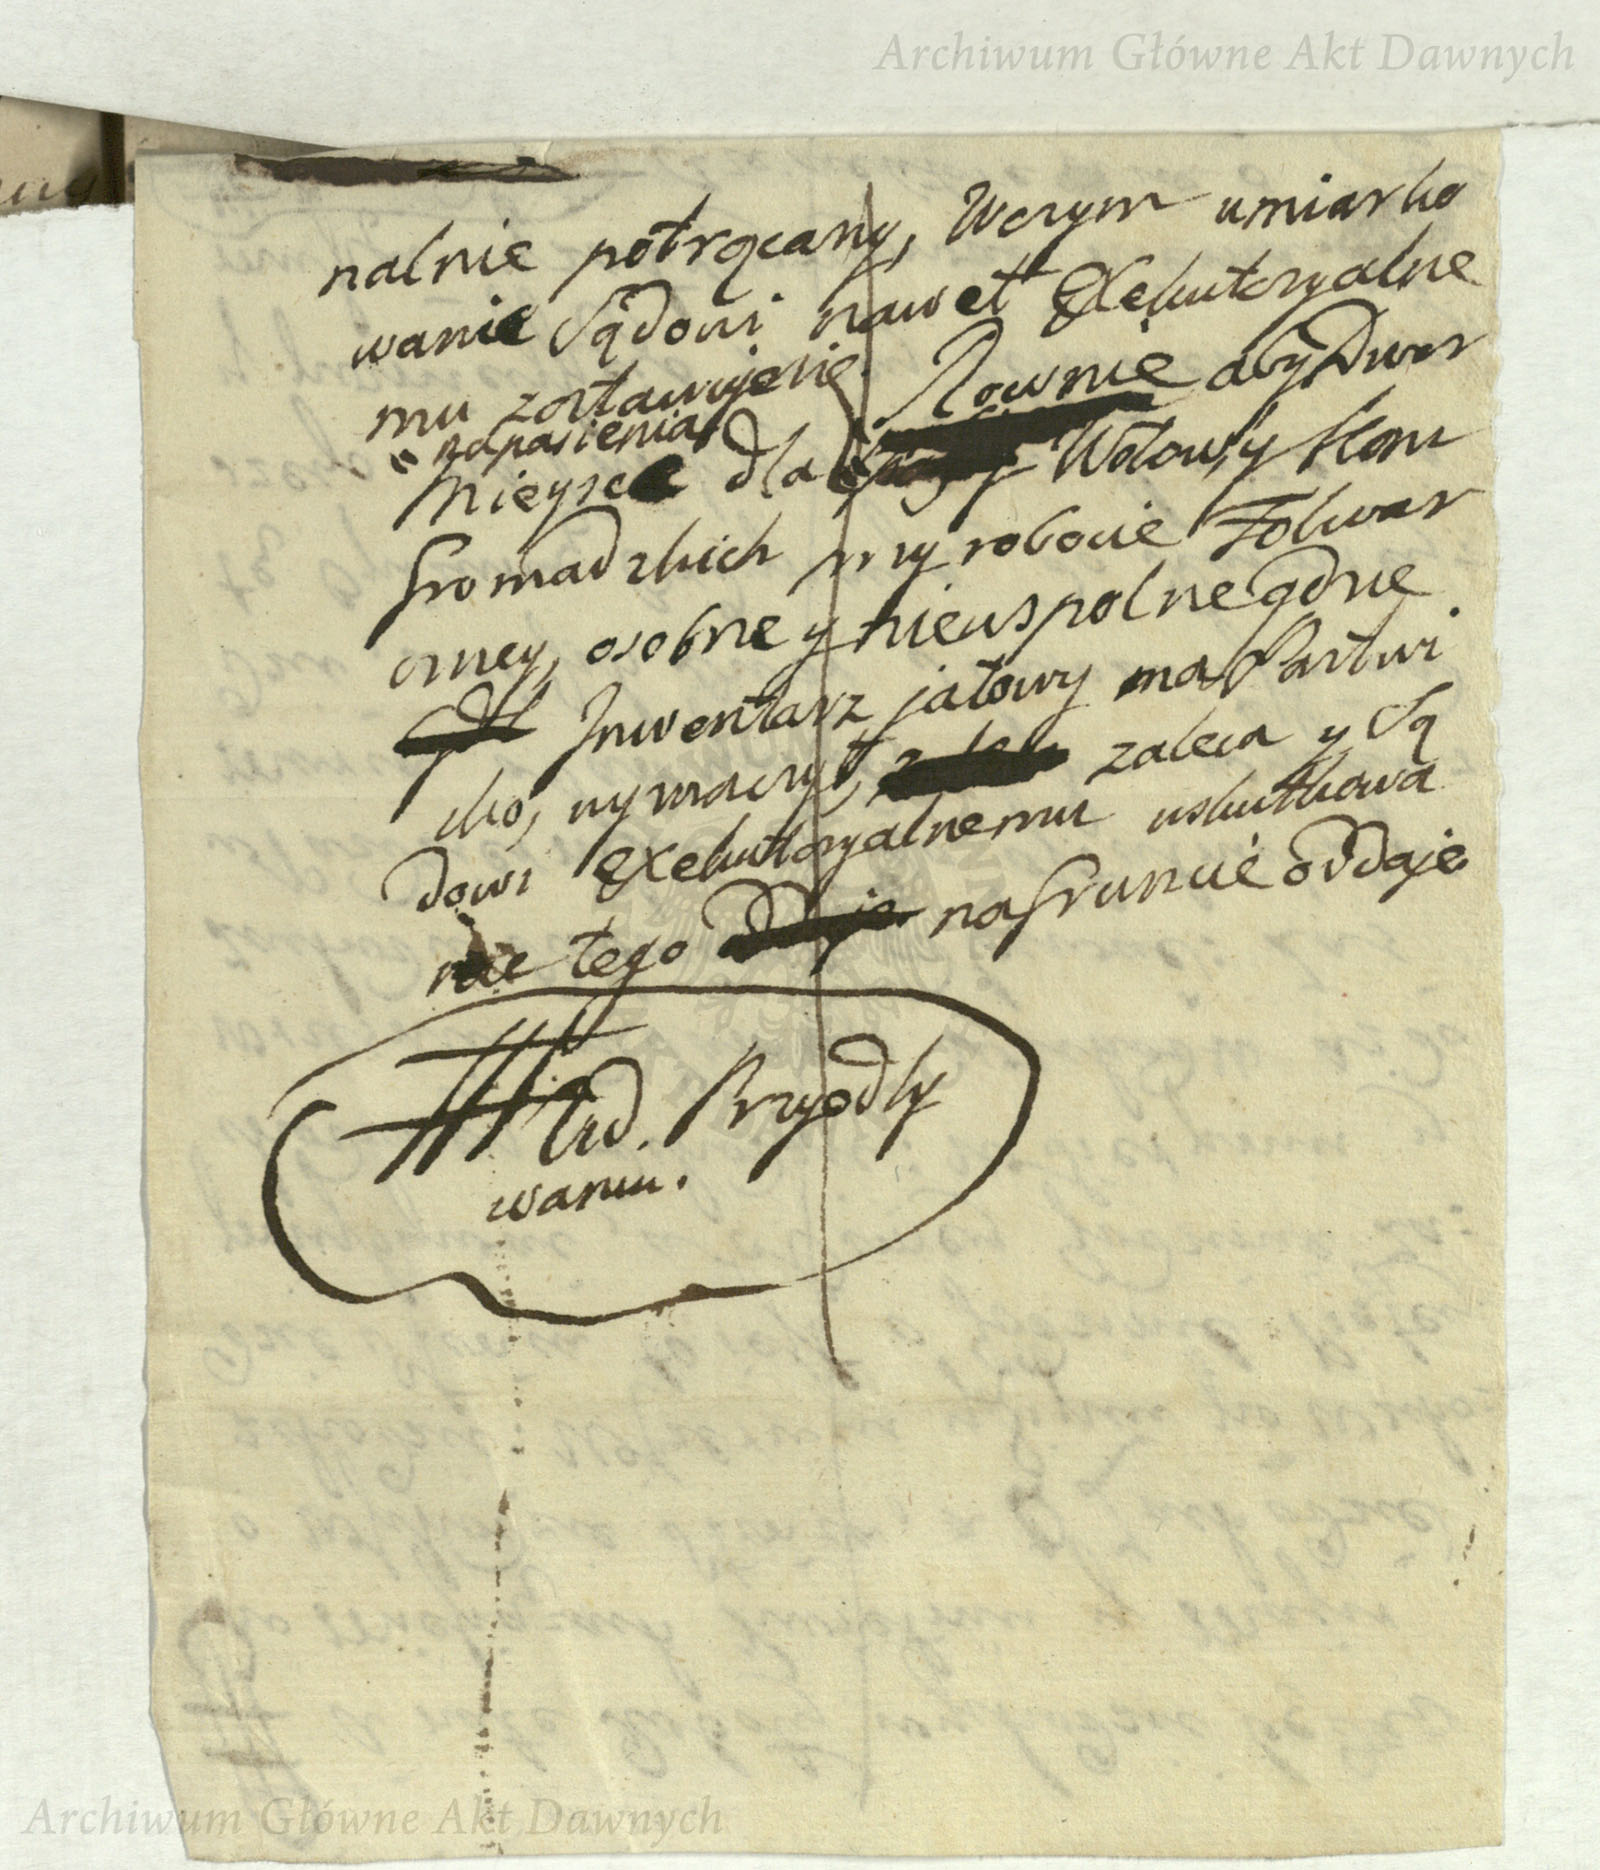 Archiwum Główne Akt Dawnych
nalnie potrącany, Wczym umiarko
wanie Sądowi nawet Exekutoryalne
mu zostawuje się. Rownie aby Dwor
zapasienia
Mieysce dla Wołow, y Koni
Gromadzkich przy robocie Folwar
czney, osobne y niewspolne gdzie
Inwentarz jałowy ma Pastwi
sko, wyznaczył, zaleca y Są
dowi Exekutoryalnemu uskutkowa
nie tego na Gruncie oddaje
Ad. Przyodzy
waniu.
Archiwum Główne Akt Dawnych